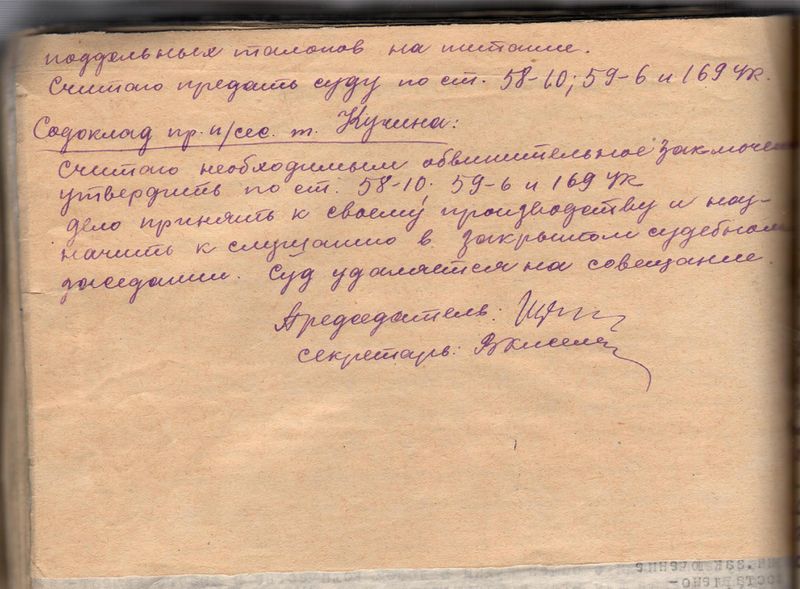 поддельных талонов на питание.
Считаю предать суду по ст. 58-10; 59-6 и 169 УК.
Содоклад пр. п/сес. т. Кучина:
Считаю необходимым обвинительное заключен
утвердить по ст. 58-10. 59-6 и 169 УК
дело принять к своему производству и наз-
начить к слушанию в закрытом судебном
заседании. Суд удаляется на совещание.
Председатель:
секретарь: ВКиселе